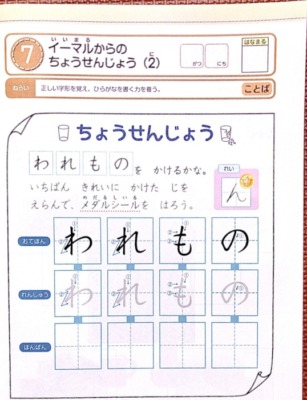 7 イーマルからの
ちょうせんじょう(2)
がつ にち
はなまる
ねらい 正しい字形を覚え、ひらがなを書く力を養う。
ことば
ちょうせんじょう
われものを かけるかな。
いちばん きれいに かけた じを
えらんで、メダルシールを はろう。
れい
ん
おてほん われもの
れんしゅう われもの
ほんばん